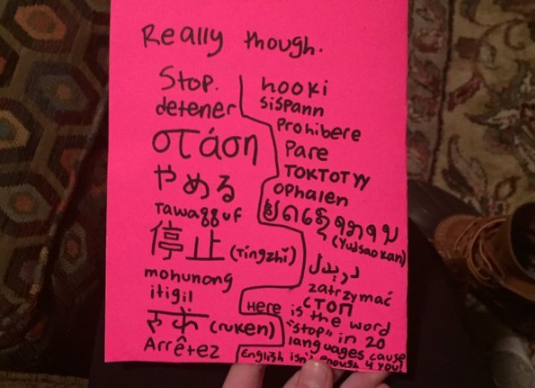 Really though.
Stop.
detener
στάση
やめる
Tawaqquf
停止 (Tingzhǐ)
mohunong
itigil
(ruken)
Arrêtez
hooki
sispann
Prohibere
Pare
ТОКТОТУУ
ophalen
(Yudsaokan)
zatrzymać
стоп
Here is the word
"stop" in 20
languages cause
English isn't enough 4 you!